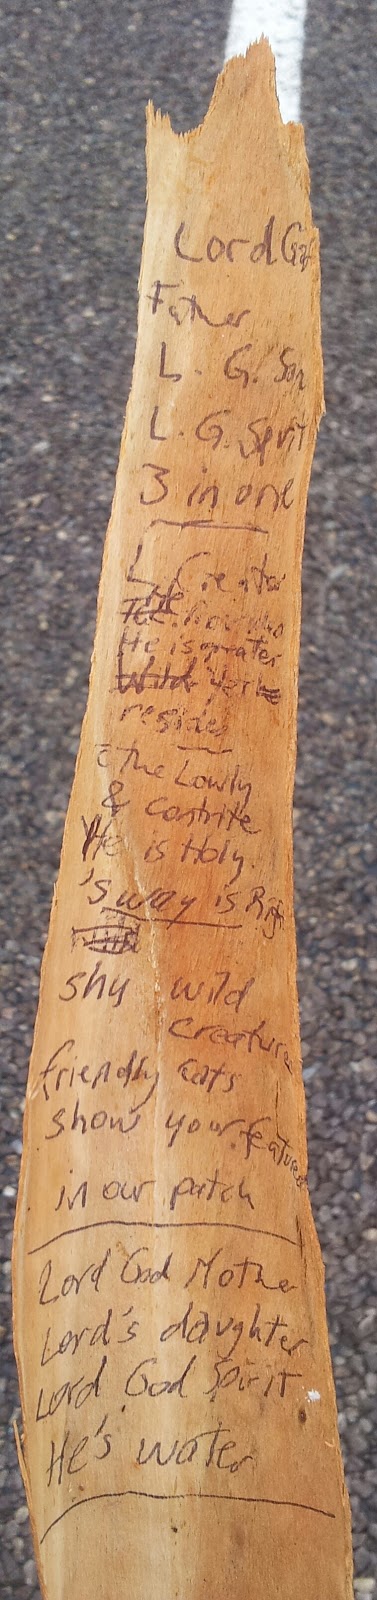 Lord God
Father
L. G. Son
L. G. Spirit
3 in one
L Creator
He
He is water
resides
the Lowly
& Contrite
He is Holy.
's way is Righ
shy wild
creatures
friendly cats
show your features
in our patch
Lord God Mother
Lord's daughter
Lord God Spirit
He's water